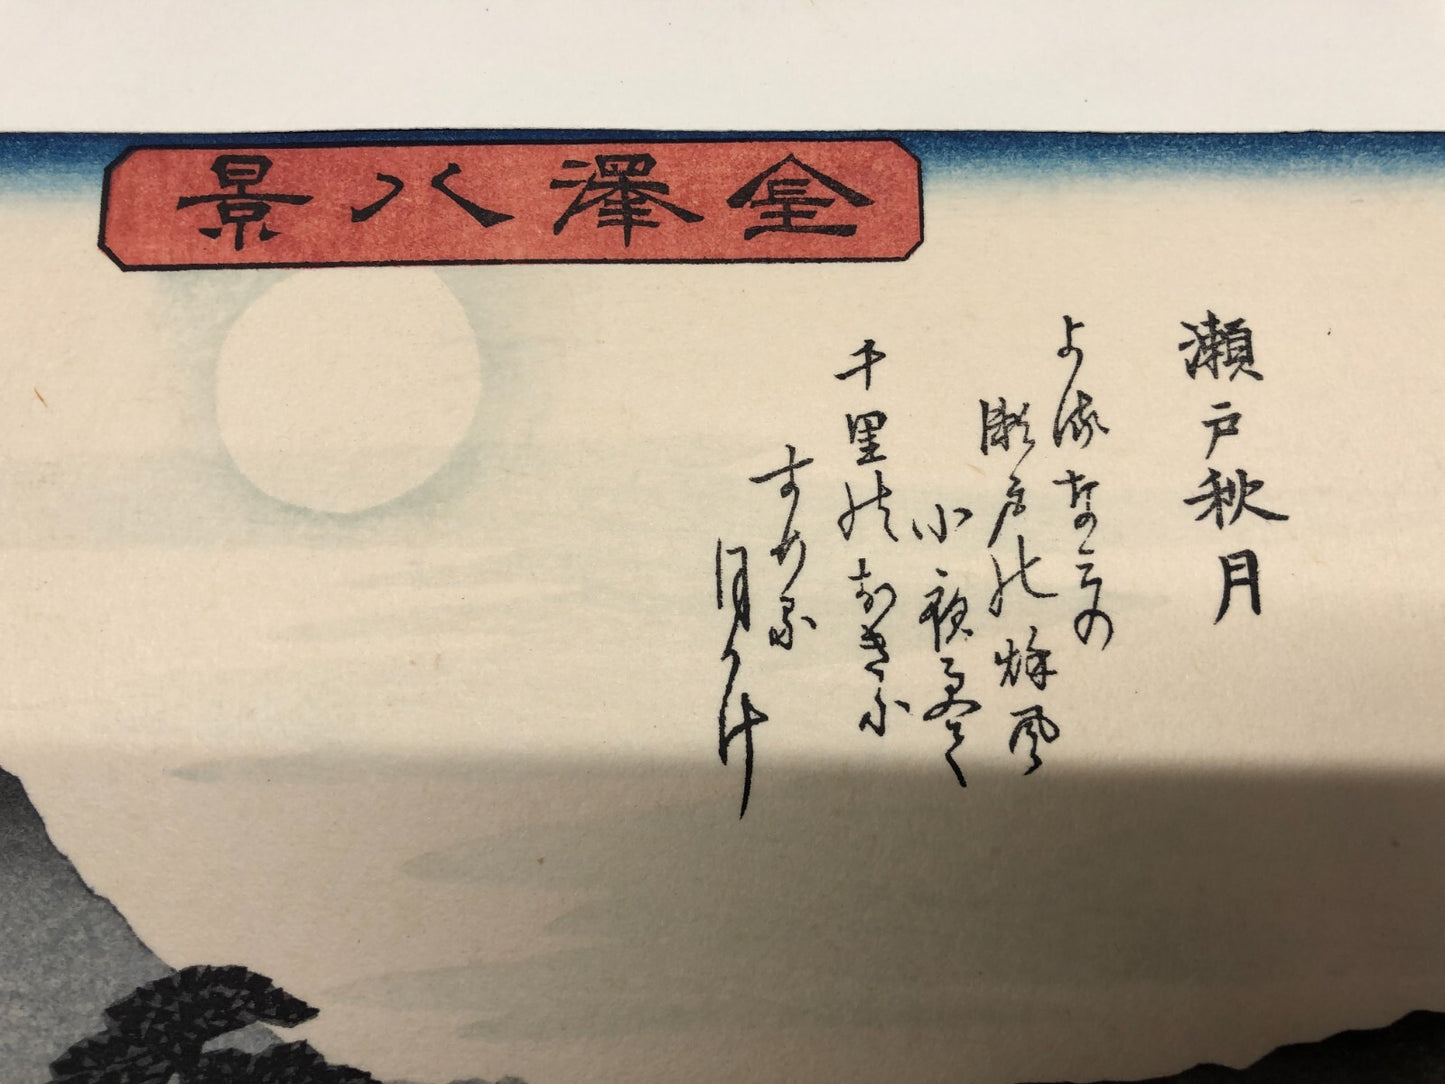 金澤八景
瀬戸秋月
よるなみの
瀬戸の秋風
小夜更て
千里のおきに
すめる
月かけ